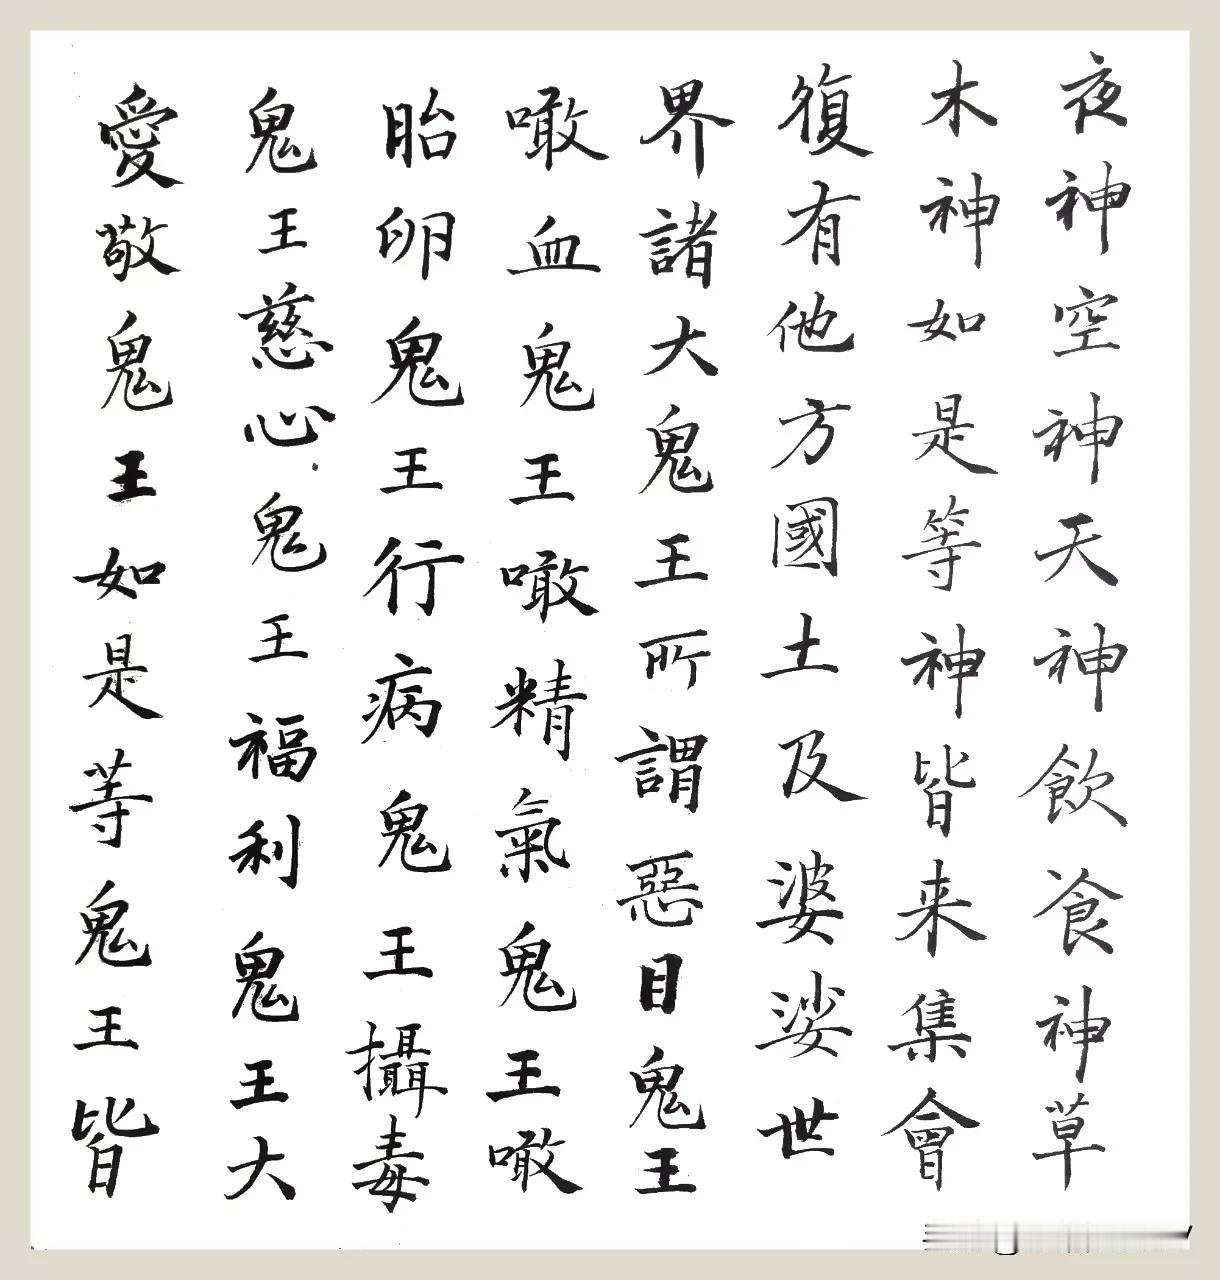 夜神空神天神飲食神草
木神如是等神皆来集會
復有他方國土及婆娑世
界諸大鬼王所謂惡目鬼王
噉血鬼王噉精氣鬼王噉
胎卵鬼王行病鬼王攝毒
鬼王慈心鬼王福利鬼王大
愛敬鬼王如是等鬼王皆